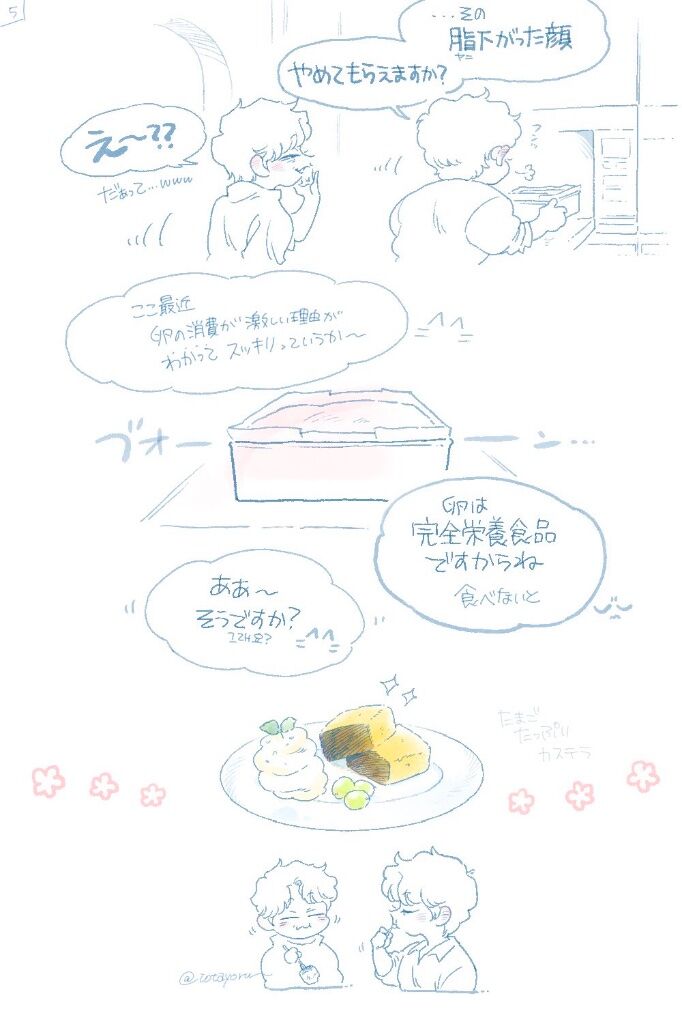 5
…その
脂下がった顔
ヤニ
やめてもらえますか?
え〜??
だぁって…www
フンッ
ここ最近
卵の消費が激しい理由が
わかって スッキリっていうか〜
ブオー
ーン…
卵は
完全栄養食品
ですからね
食べないと
ああ〜
そうですか?
그래요?
たまご
たっぷり
カステラ